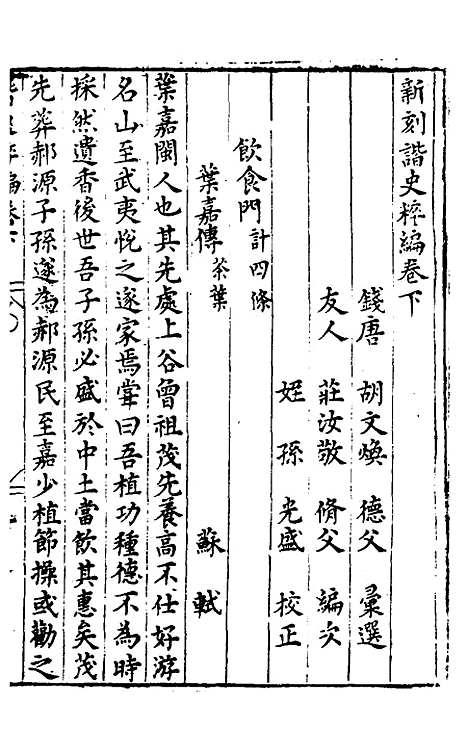 新刻諧史粹編卷下
錢唐 胡文煥 德父 彙選
友人 莊汝敬 脩父 編次
姪孫 光盛 校正
飲食門計四條
葉嘉傳 茶葉 蘇軾
葉嘉閩人也其先處上谷曾祖茂先養高不仕好游
名山至武夷悅之遂家焉嘗曰吾植功種德不為時
採然遺香後世吾子孫必盛於中土當飲其惠矣茂
先葬郝源子孫遂為郝源民至嘉少植節操或勸之